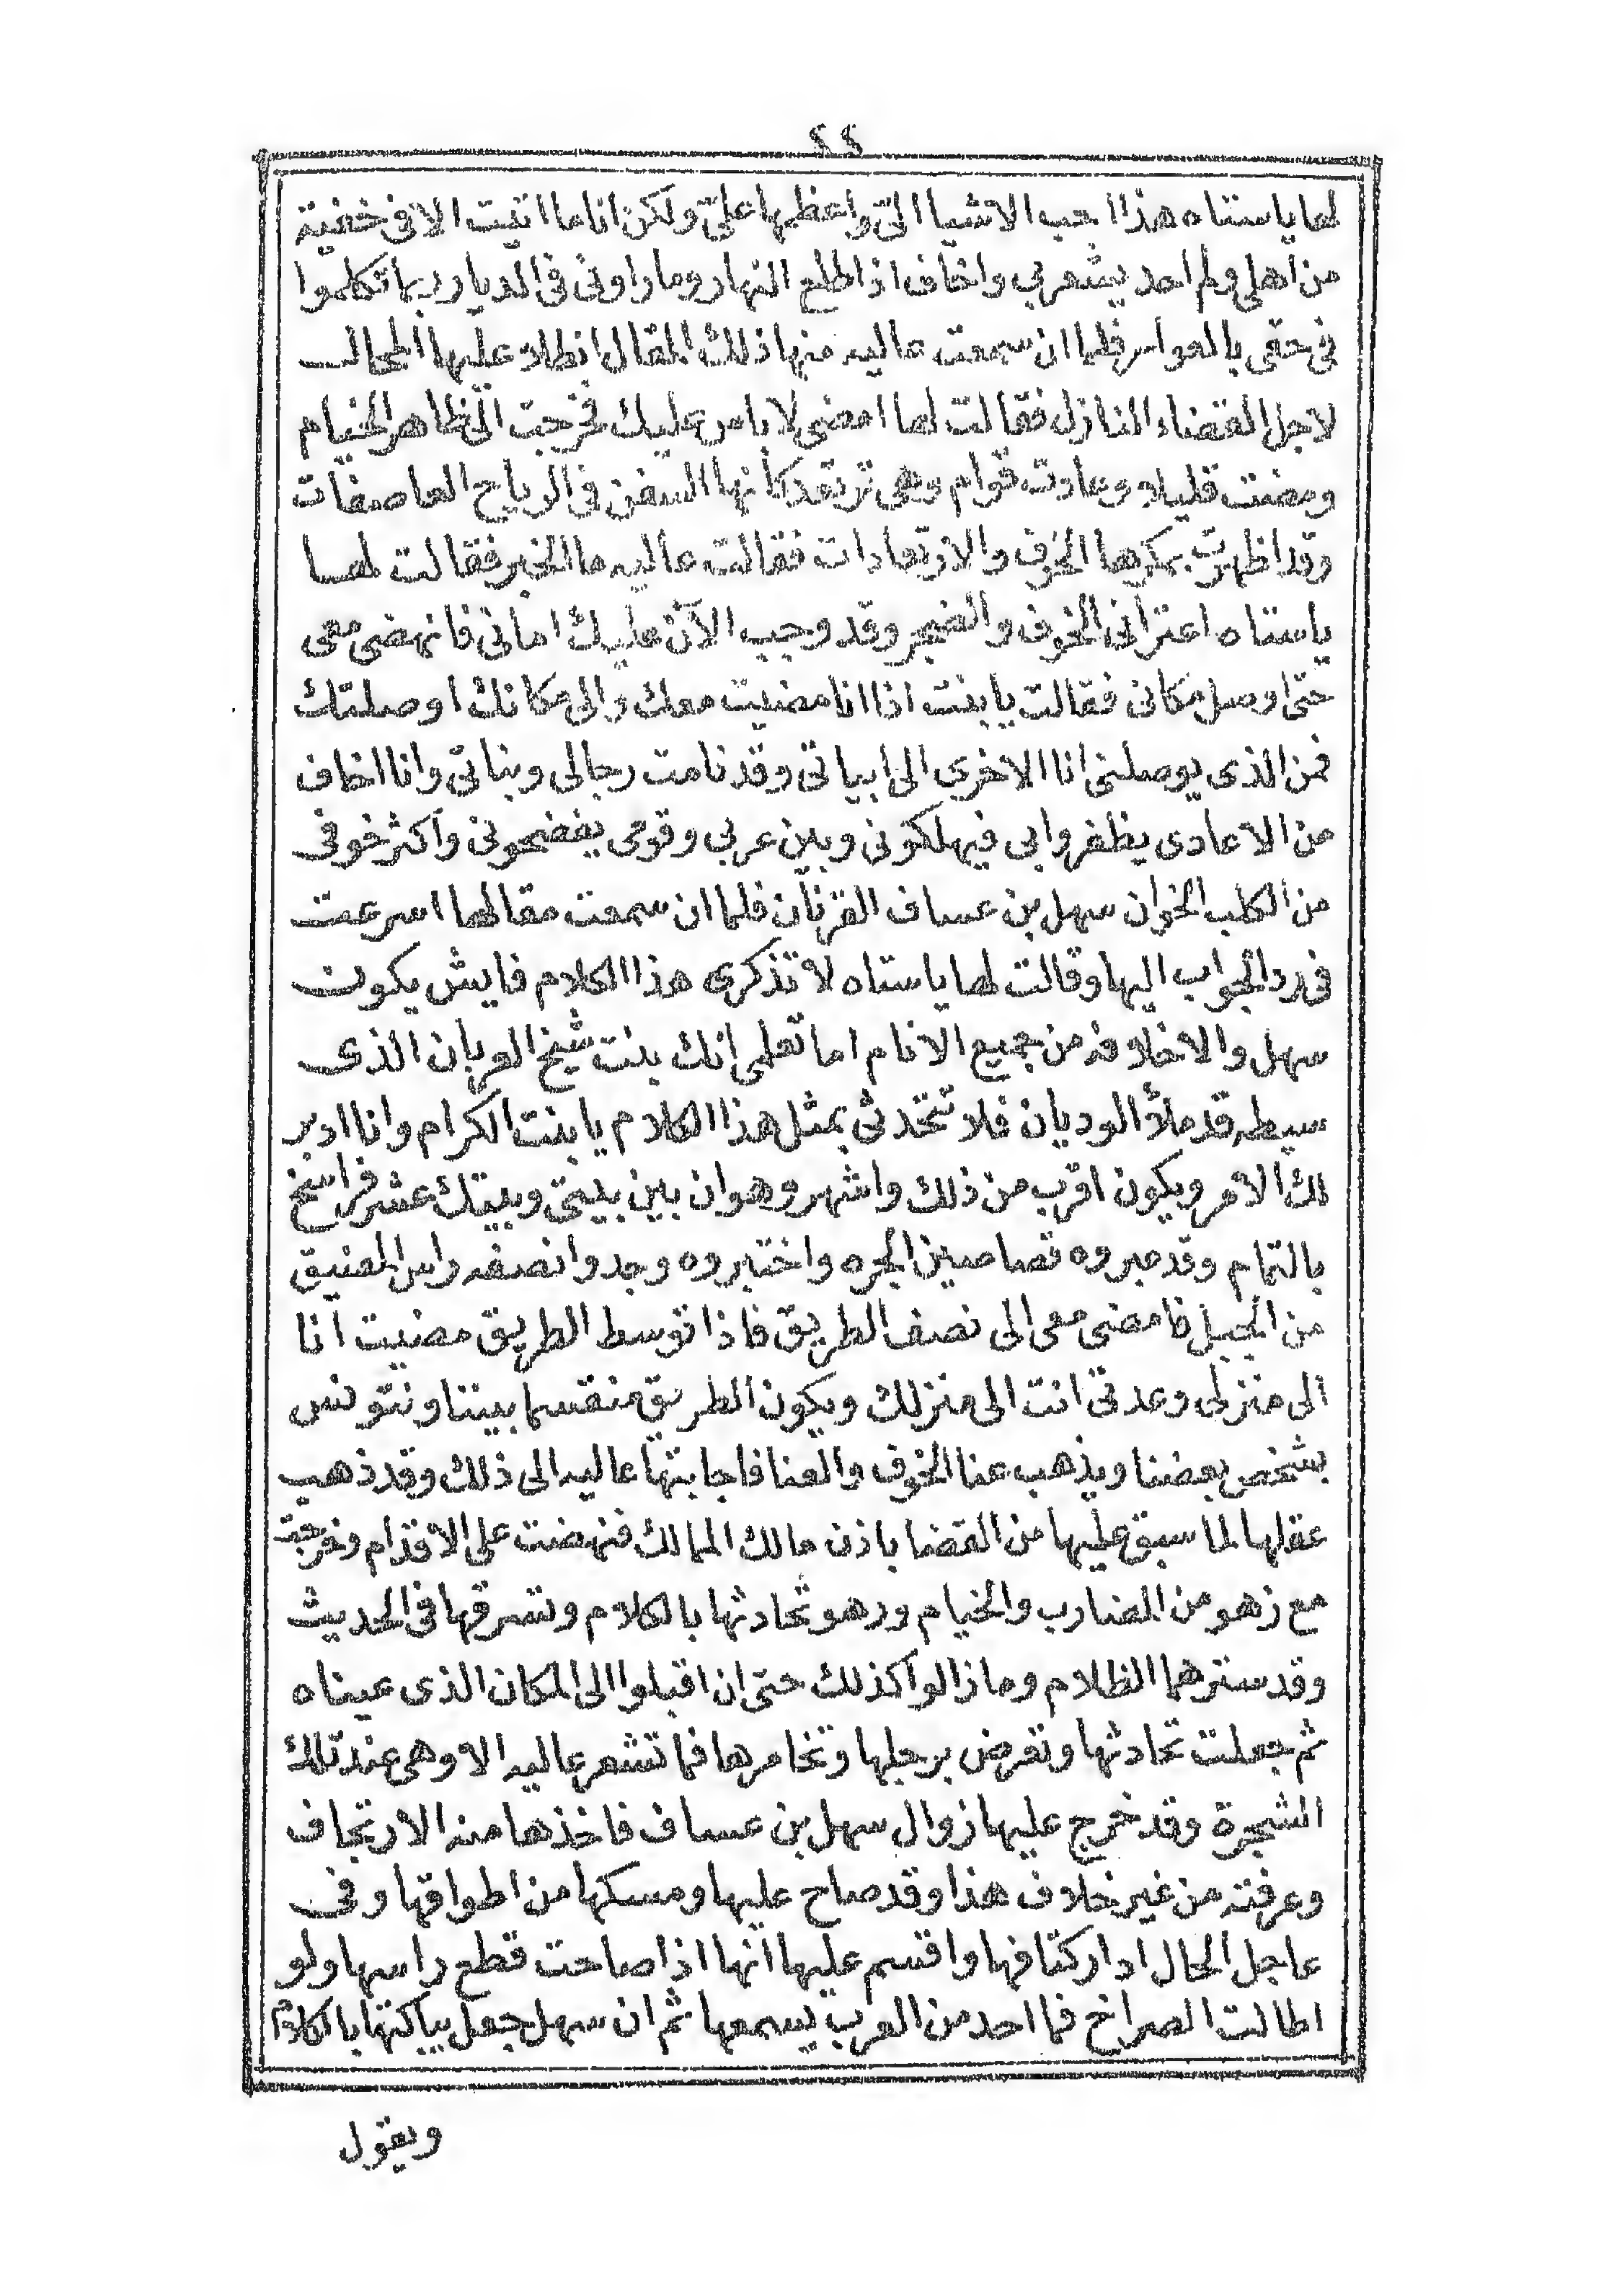 ٢٢
لها ياستاه هذا احب الاشيا الىّ واعظمها علىّ ولكن انا ما اتيت الا فى خفية
من اهلى ولم احد يشعر بى واخاف اذا طلع النهار وما راونى فى الديار ربما تكلموا
فى حقى بالعوار فلما ان سمعت عاليه منها ذلك المقال انطلا عليها المحال
لاجل القضاء المنازل فقالت لها امضى لا باس عليك فخرجت الى ظاهر الخيام
ومضت قليلا وعادت قوام وهى ترتعد كأنها السفن فى الرياح العاصفات
وقد اظهرت بمكرها الخوف والارتعادات فقالت عاليه ما الخبر فقالت لها
ياستاه اعترانى الخوف والضجر وقد وجب الآن عليك امانى فانهضى معى
حتى اوصل مكانى فقالت يا بنت اذا انا مضيت معك والى مكانك اوصلتك
فمن الذى يوصلنى انا الاخرى الى ابياتى وقد نامت رجالى وبناتى وانا اخاف
من الاعادى يظفروا بى فيهلكونى وبين عربى وقومى يفضحونى واكثر خوفى
من الكلب الخوان سهل بن عساف القرنان فلما ان سمعت مقالها اسرعت
فى رد الجواب اليها وقالت لها ياستاه لا تذكرى هذا الكلام فايش يكون
سهل والا خلافه من جميع الانام اما تعلمى انك بنت شيخ العربان الذى
سيطه قد ملأ الوديان فلا تتحدثى بمثل هذا الكلام يا بنت الكرام وانا ادبر
لك الامر ويكون اقرب من ذلك واشهر وهو ان بين بيتى وبيتك عشر فراسخ
بالتمام وقد عبروه قصاصين الجره واختبروه وجدوا نصفه راس المضيق
من الجبل فامضى معى الى نصف الطريق فاذا توسط الطريق مضيت انا
الى منزلى وعدتى انت الى منزلك ويكون الطريق منقسما بيننا ونتونس
بشخص بعضنا ويذهب عنا الخوف والعنا فاجابتها عاليه الى ذلك وقد ذهب
عقلها لما سبق عليها من القضا باذن مالك الممالك فنهضت على الاقدام وخرجت
مع زهو من المضارب والخيام وزهو تحادثها بالكلام وتسرقها فى الحديث
وقد سترهما الظلام وما زالوا كذلك حتى ان اقبلوا الى المكان الذى عيناه
ثم جعلت تحادثها وتعرض برجلها وتخامرها فما تشعر عاليه الا وهى عند تلك
الشجرة وقد خرج عليها زوال سهل بن عساف فاخذها منه الارتجاف
وعرفته من غير خلاف هذا وقد صاح عليها ومسكها من اطواقها وفى
عاجل الحال ادار كتافها واقسم عليها انها اذا صاحت قطع راسها ولو
اطالت الصراخ فما احد من العرب يسمعها ثم ان سهل جعل يباكتها بالكلام
ويقول